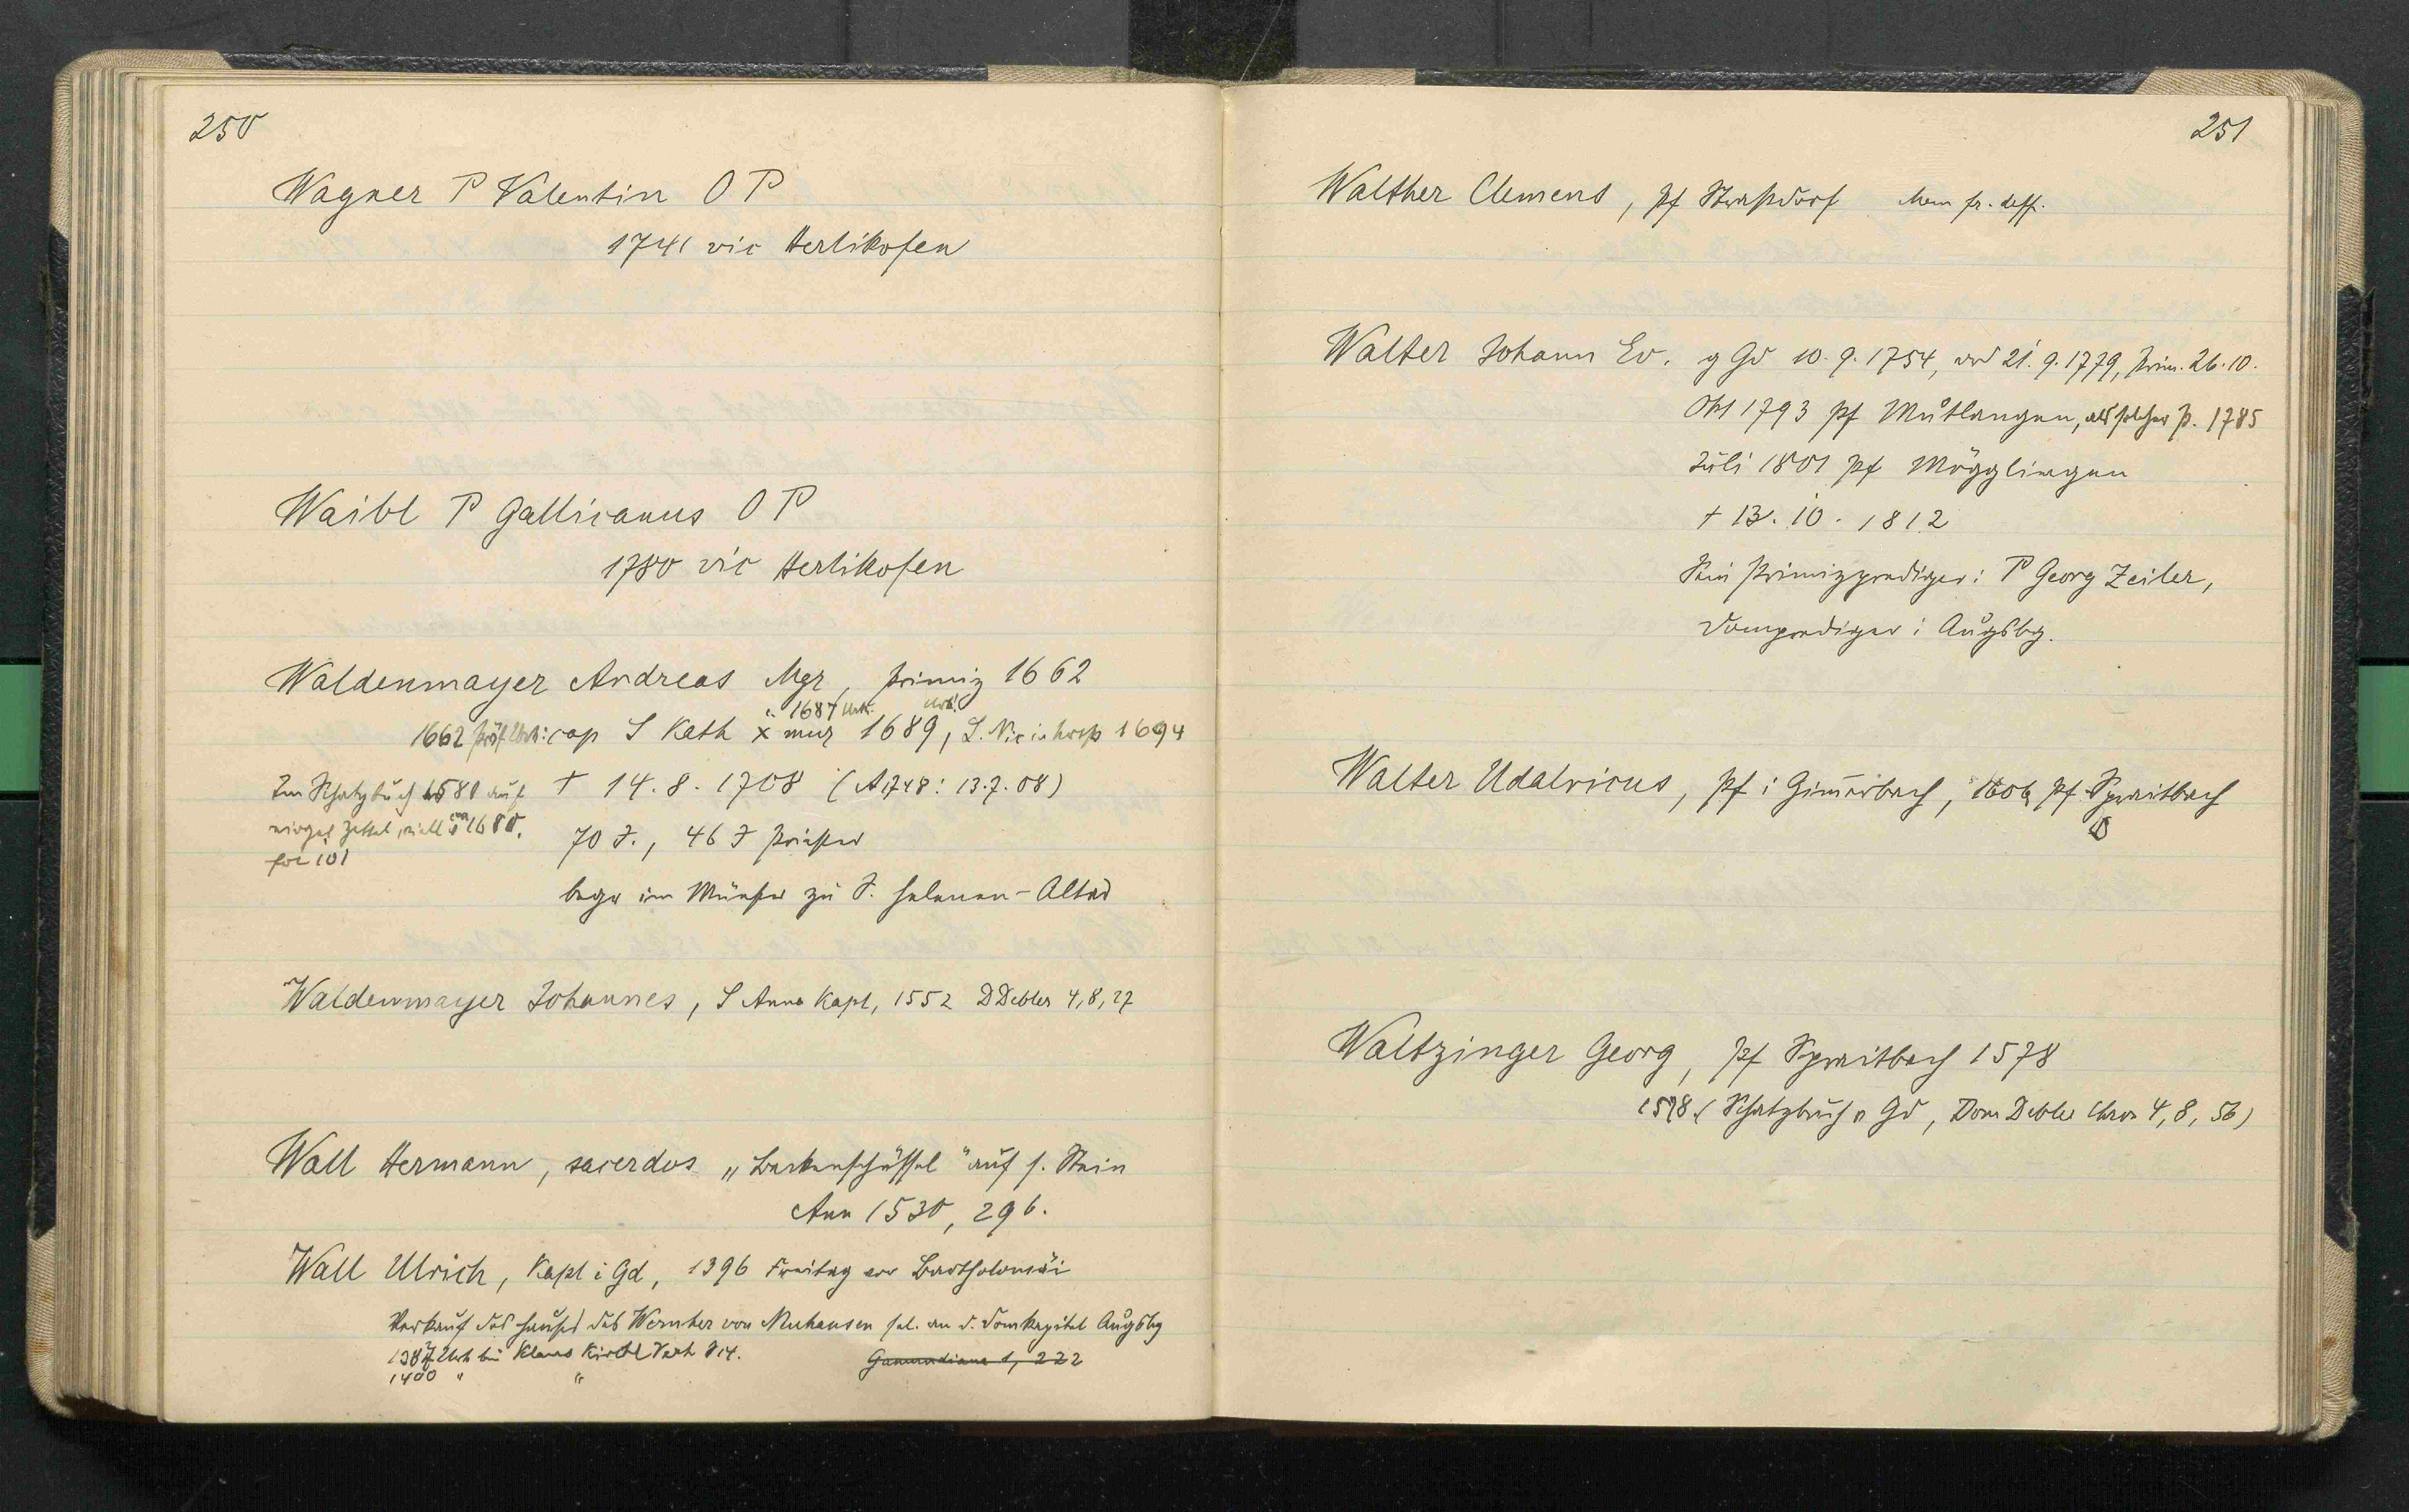 250
Wagner P Valentin O P
1741 vic Herlikofen
Waibl P Gallicanus O P
1780 vic Herlikofen
Waldenmayer Andreas Mgr, Primiz 1662
1687 Urk.
1662 Präs. Urk: cap S Kath x mur 1689, S. Nic in hosp 1694
Im Schatzbuch 1580 auf
eingel Zettel, viell 1680.
fol 101
† 14. 8. 1708 (A 1748: 13.7.08)
70 J., 46 J Priester
begr im Münster zu S. Helenen-Altar
Waldenmayer Johannes, S Anna Kapl, 1552 DDebler 4,8,27
Wall Hermann, sacerdos „Beckenschüssel" auf s. Stein
Ann 1530, 296.
Wall Ulrich, Kapl i Gd, 1396 Freitag vor Bartholomäi
Verkauf des Hauses des Wernher von Neuhausen sel. an d. Domkapitel Augsbg
1387 Urk bei Klaus Kirchl
1400 " "
Gamundiana 1, 222
251
Walther Clemens, Pf Straßdorf Mem fr. deff.
Walter Johann Ev. g Gd 10. 9. 1754, ord 21. 9. 1779, Prim. 26. 10.
Okt 1793 Pf Mutlangen, als solcher P. 1785
Juli 1801 Pf Mögglingen
† 13. 10. 1812
Sein Primizprediger: P Georg Zeiler,
Domprediger i Augsbg.
Walter Udalricus, Pf i Gimerbach, 1606 Pf Spraitbach
Waltzinger Georg, Pf Spraitbach 1578
1578 (Schatzbuch v Gd, Dom Debler Chron 4, 8, 56)